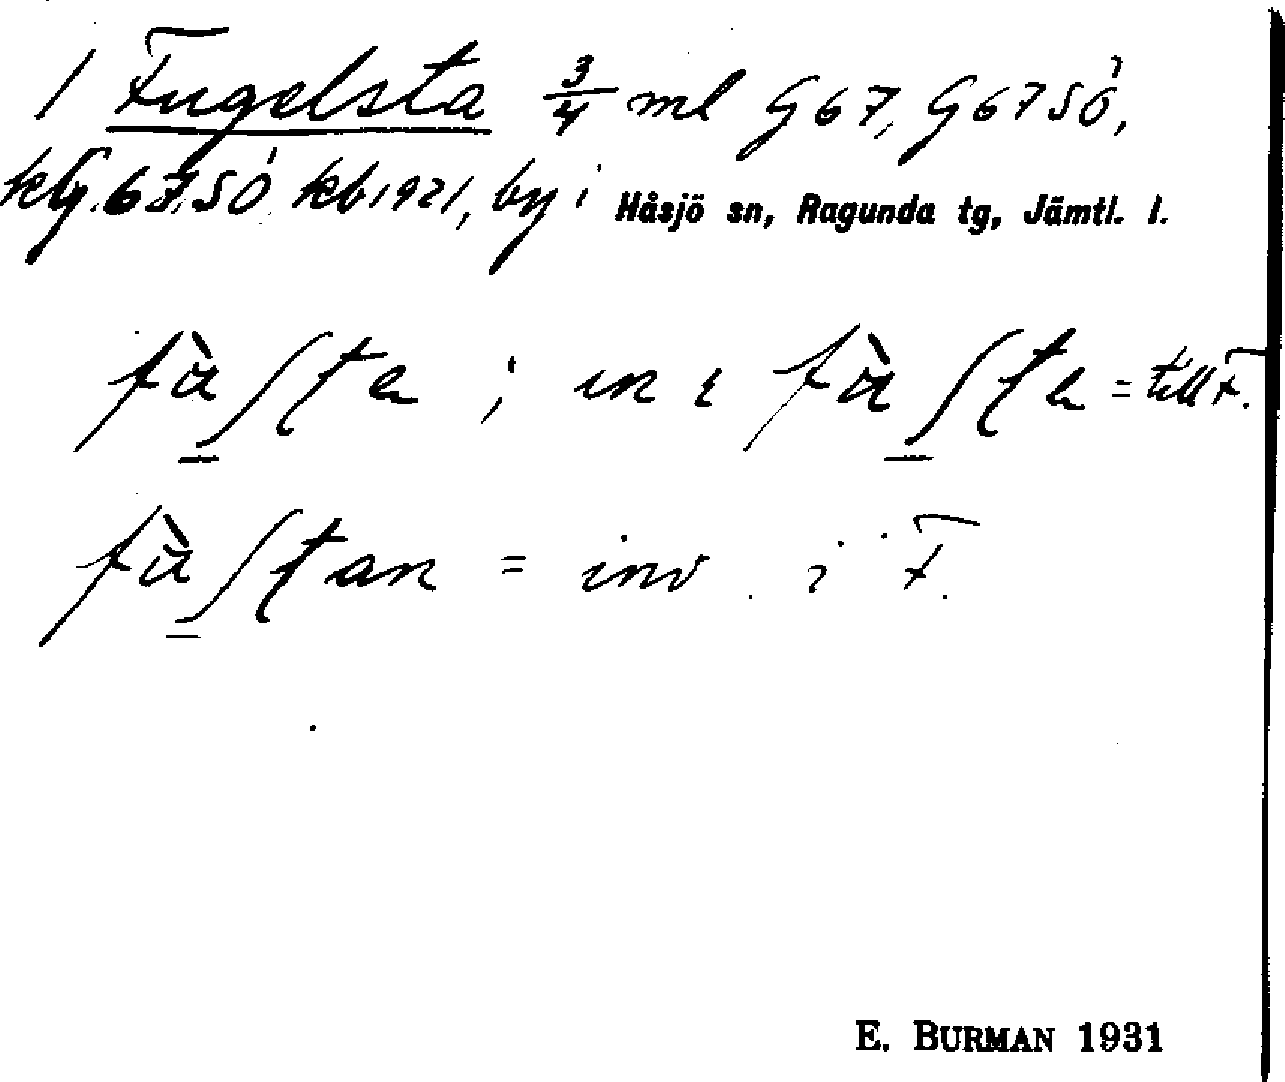 1 Fugelsta 3/4 ml G67, G67SÖ,
kb 1921, by i Håsjö sn, Ragunda tg, Jämtl. l.
fàʃta ; in i fàʃta = till F.
fàʃtan = inv. i F.
E. BURMAN 1931